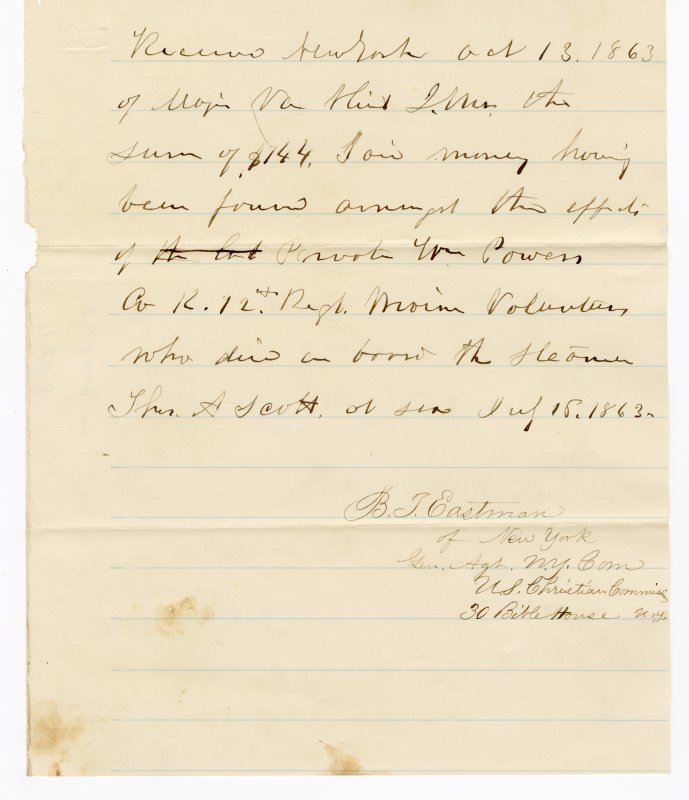 Received New York Oct 13. 1863
of Major Van Vliet Q.M. the
sum of $144. Said money having
been found amongst the effects
of the late Private Wm Powers
Co K. 12th Regt. Maine Volunteers
who died on board the steamer
Thos. A Scott. at sea 18. 1863.
B. T. Eastman
of New York
Gen. Agt. N.Y. Com
U.S. Christian Commiss
30 Bible House N.Y.